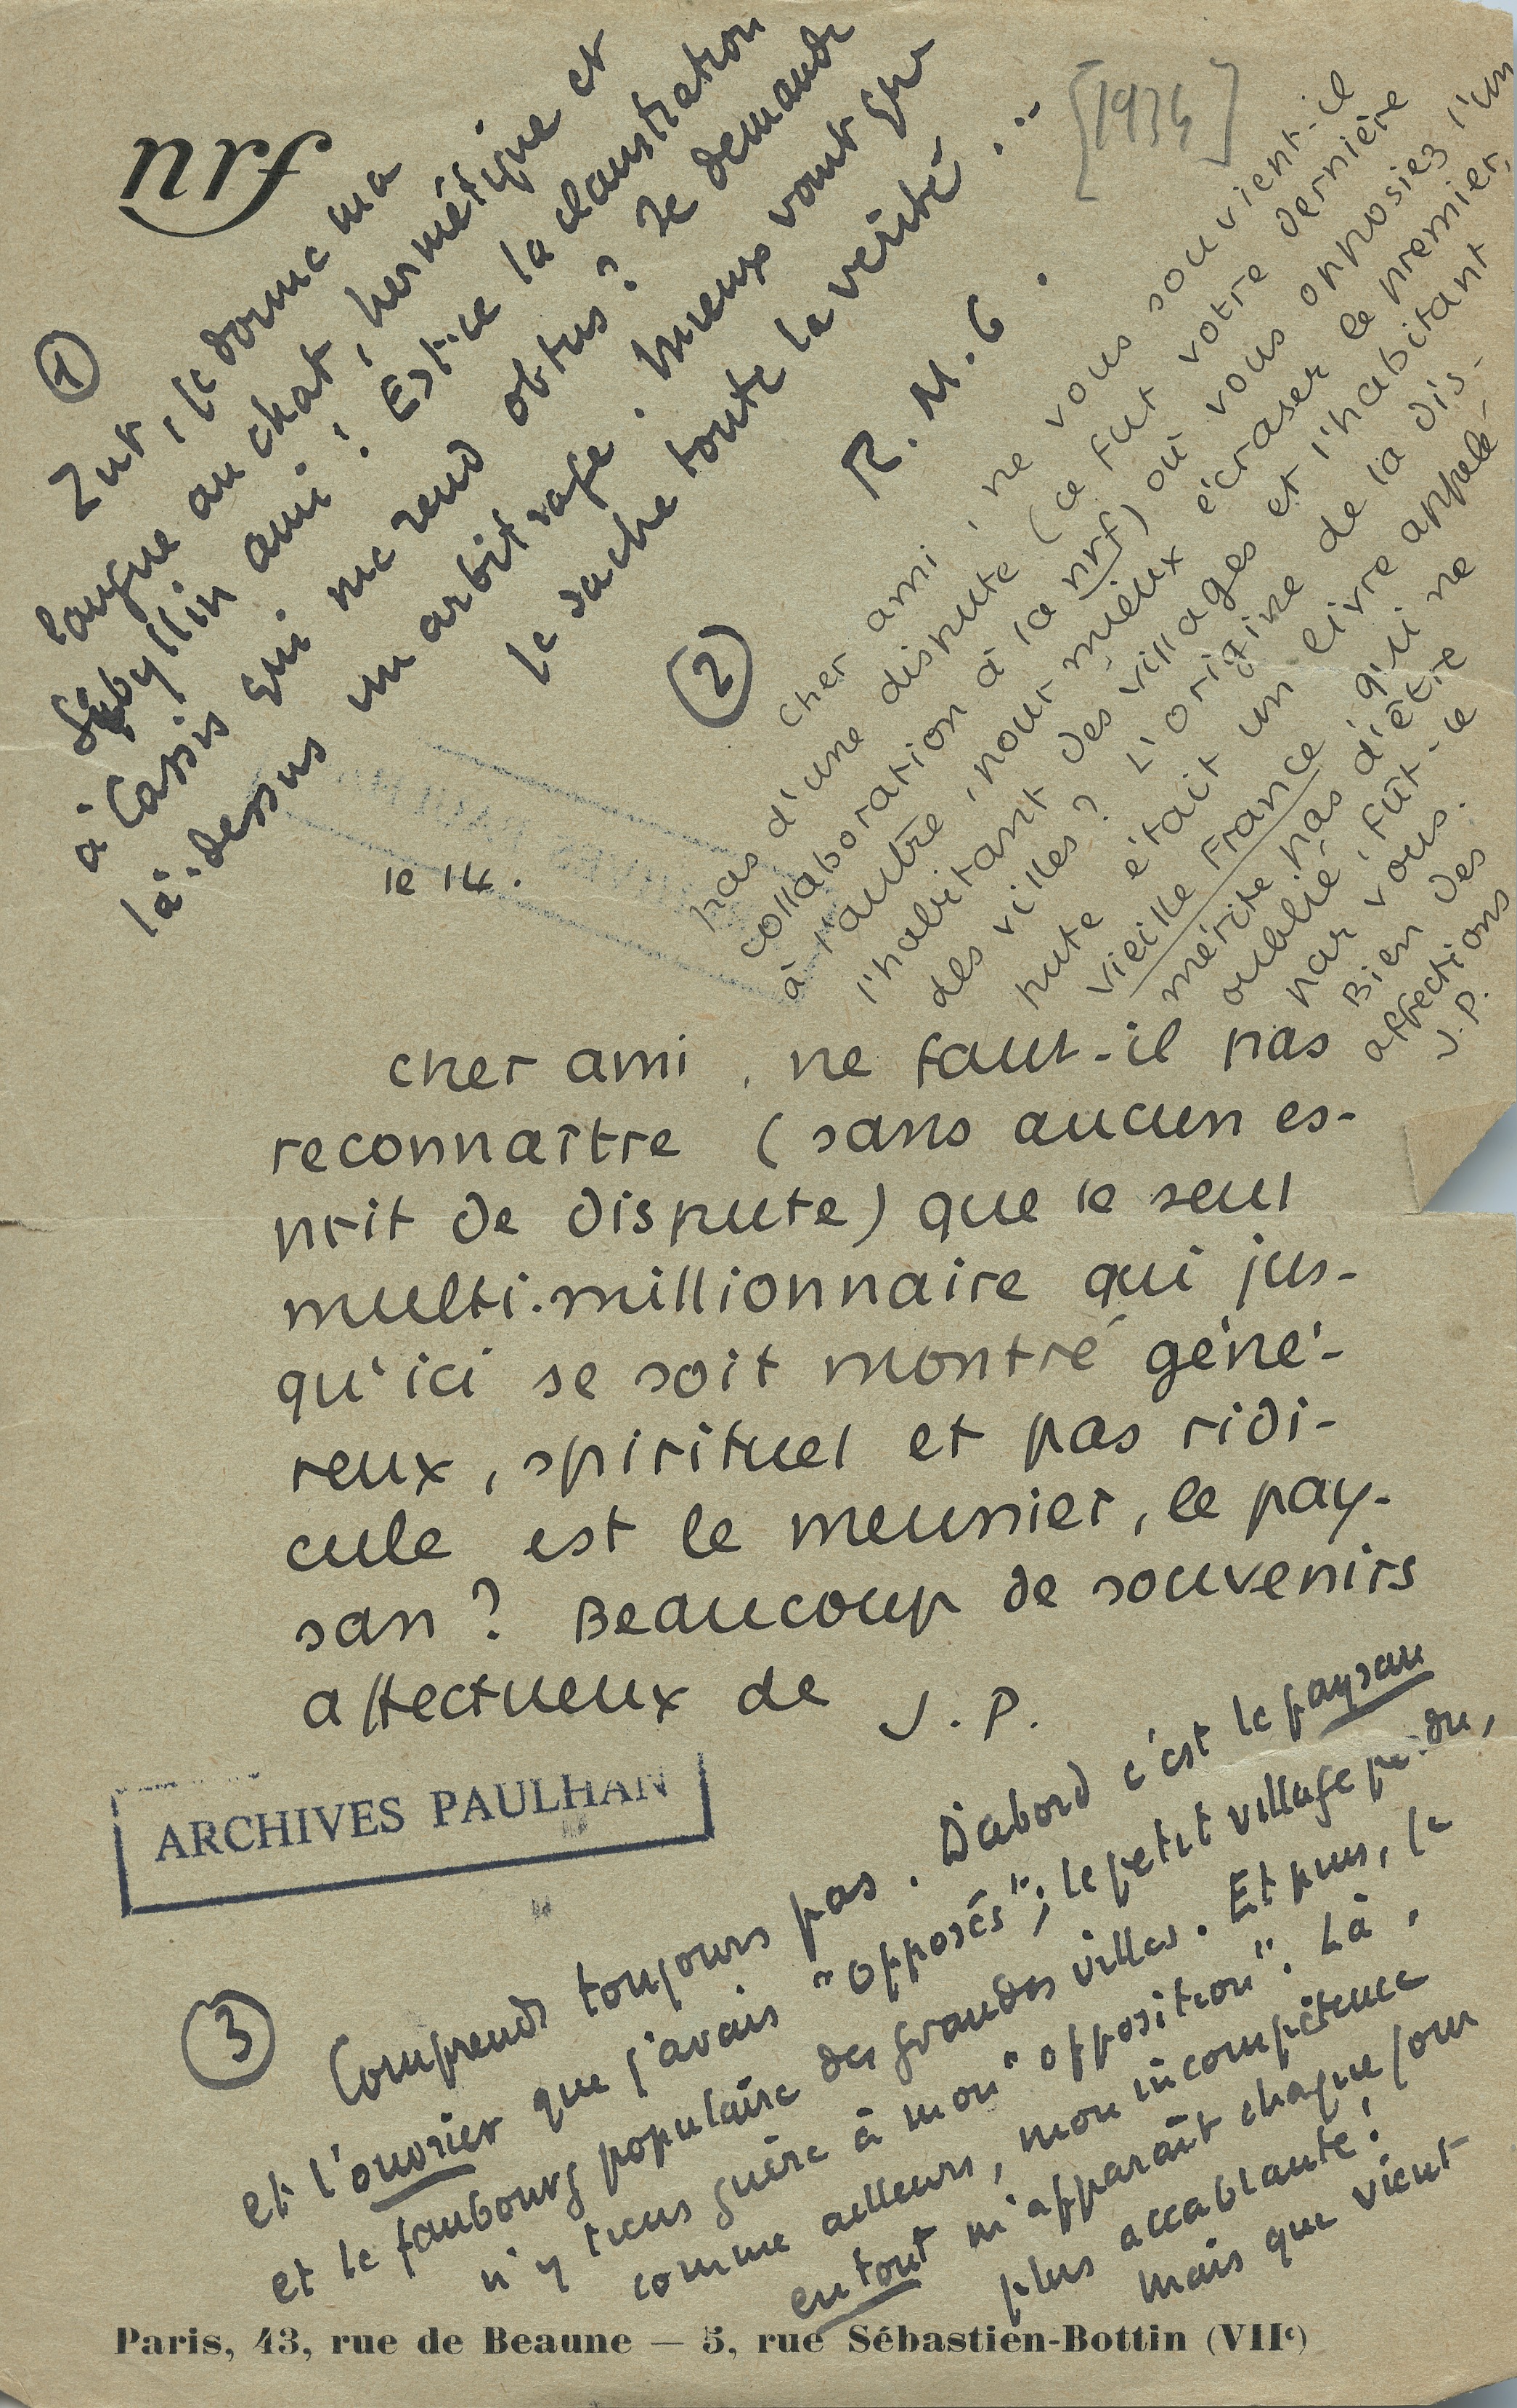 nrf
[1934]
le 14.
cher ami, ne faut-il pas
reconnaître (sans aucun es-
prit de dispute) que le seul
multi-millionnaire qui jus-
qu'ici se soit montré géné-
reux, spirituel et pas ridi-
cule est le meunier, le pay-
san ? Beaucoup de souvenirs
affectueux de J. P.
ARCHIVES PAULHAN
①
Zut, je donne ma
langue au chat, hermétique et
sibyllin ami ! Est-ce la claustration
à Cassis qui me rend obtus ? Je demande
là-dessus un arbitrage. Mieux vaut que
je sache toute la vérité...
R. M. G.
②
cher ami, ne vous souvient-il
pas d'une dispute (ce fut votre dernière
collaboration à la nrf) où vous opposiez l'un
à l'autre, pour mieux écraser le premier,
l'habitant des villages et l'habitant
des villes ? L'origine de la dis-
pute était un livre appelé
Vieille France, qui ne
mérite pas d'être
oublié, fût-ce
par vous.
Bien des
affections
J. P.
③
Comprends toujours pas. D'abord c'est le paysan
et l'ouvrier que j'avais "opposés"; le petit village perdu,
et le faubourg populaire des grandes villes. Et puis, je
n'y tiens guère à mon "opposition". Là,
comme ailleurs, mon incompétence
en tout m'apparaît chaque jour
plus accablante !
Mais que vient
Paris, 43, rue de Beaune — 5, rue Sébastien-Bottin (VIIe)